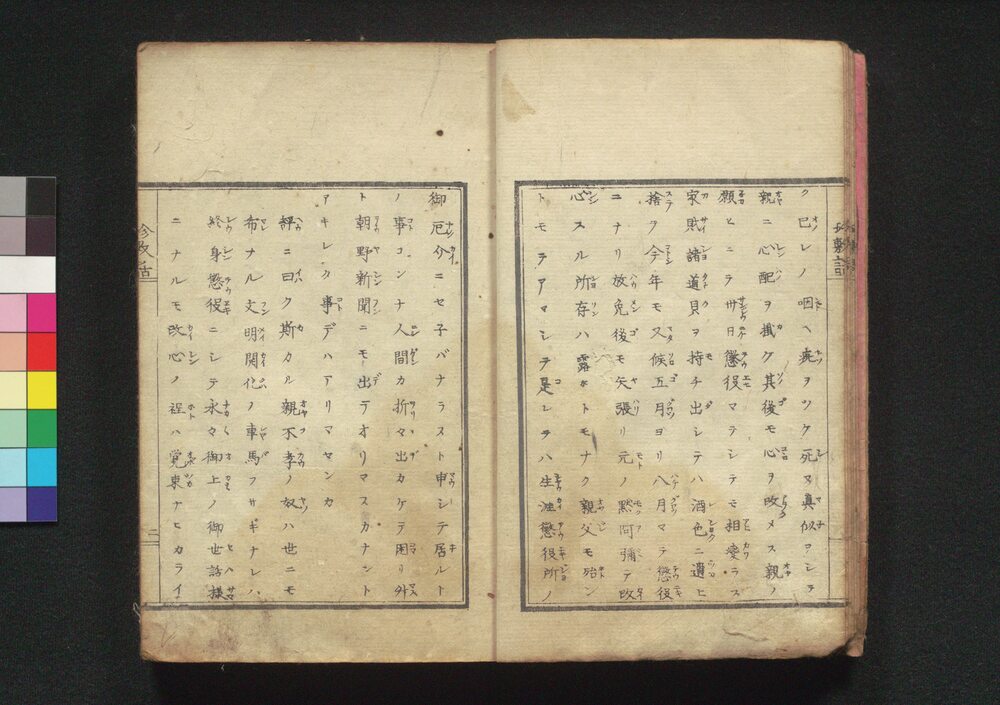 ク已レノ咽ヘ疵ヲツケ死ヌ真似ヲシテ
親ニ心配ヲ懺ク其後モ心ヲ改メス親ノ
願ヒニテ卅日懲役マテシテモ相変ラス
家財諸道具ヲ持チ出シテハ酒色ニ遣ヒ
捨ヲ今年モ又候五月ヨリ八月マテ懲役
ニナリ放免後モ矢張リ元ノ黙阿彌テ改
心スル所存ハ露ホトモナク親父モ殆ン
トモテアマシテヲ是レテハ生涯懲役所ノ
御厄介ニセ子バナラスト申シテ居ルト
ノ事コンナ人間カ折々出カケテ困リ外
ト朝野新聞ニモ出テオリマスカナント
アキレタ事デハアリマセンカ
評ニ曰ク斯カル親不孝ノ奴ハ世ニモ
布ナル文明開化ノ車馬フサギナレハ
終身懲役ニシテ永々御上ノ御世話様
ニナルモ改心ノ程ハ覚束ナヒカライ
珍政話
二